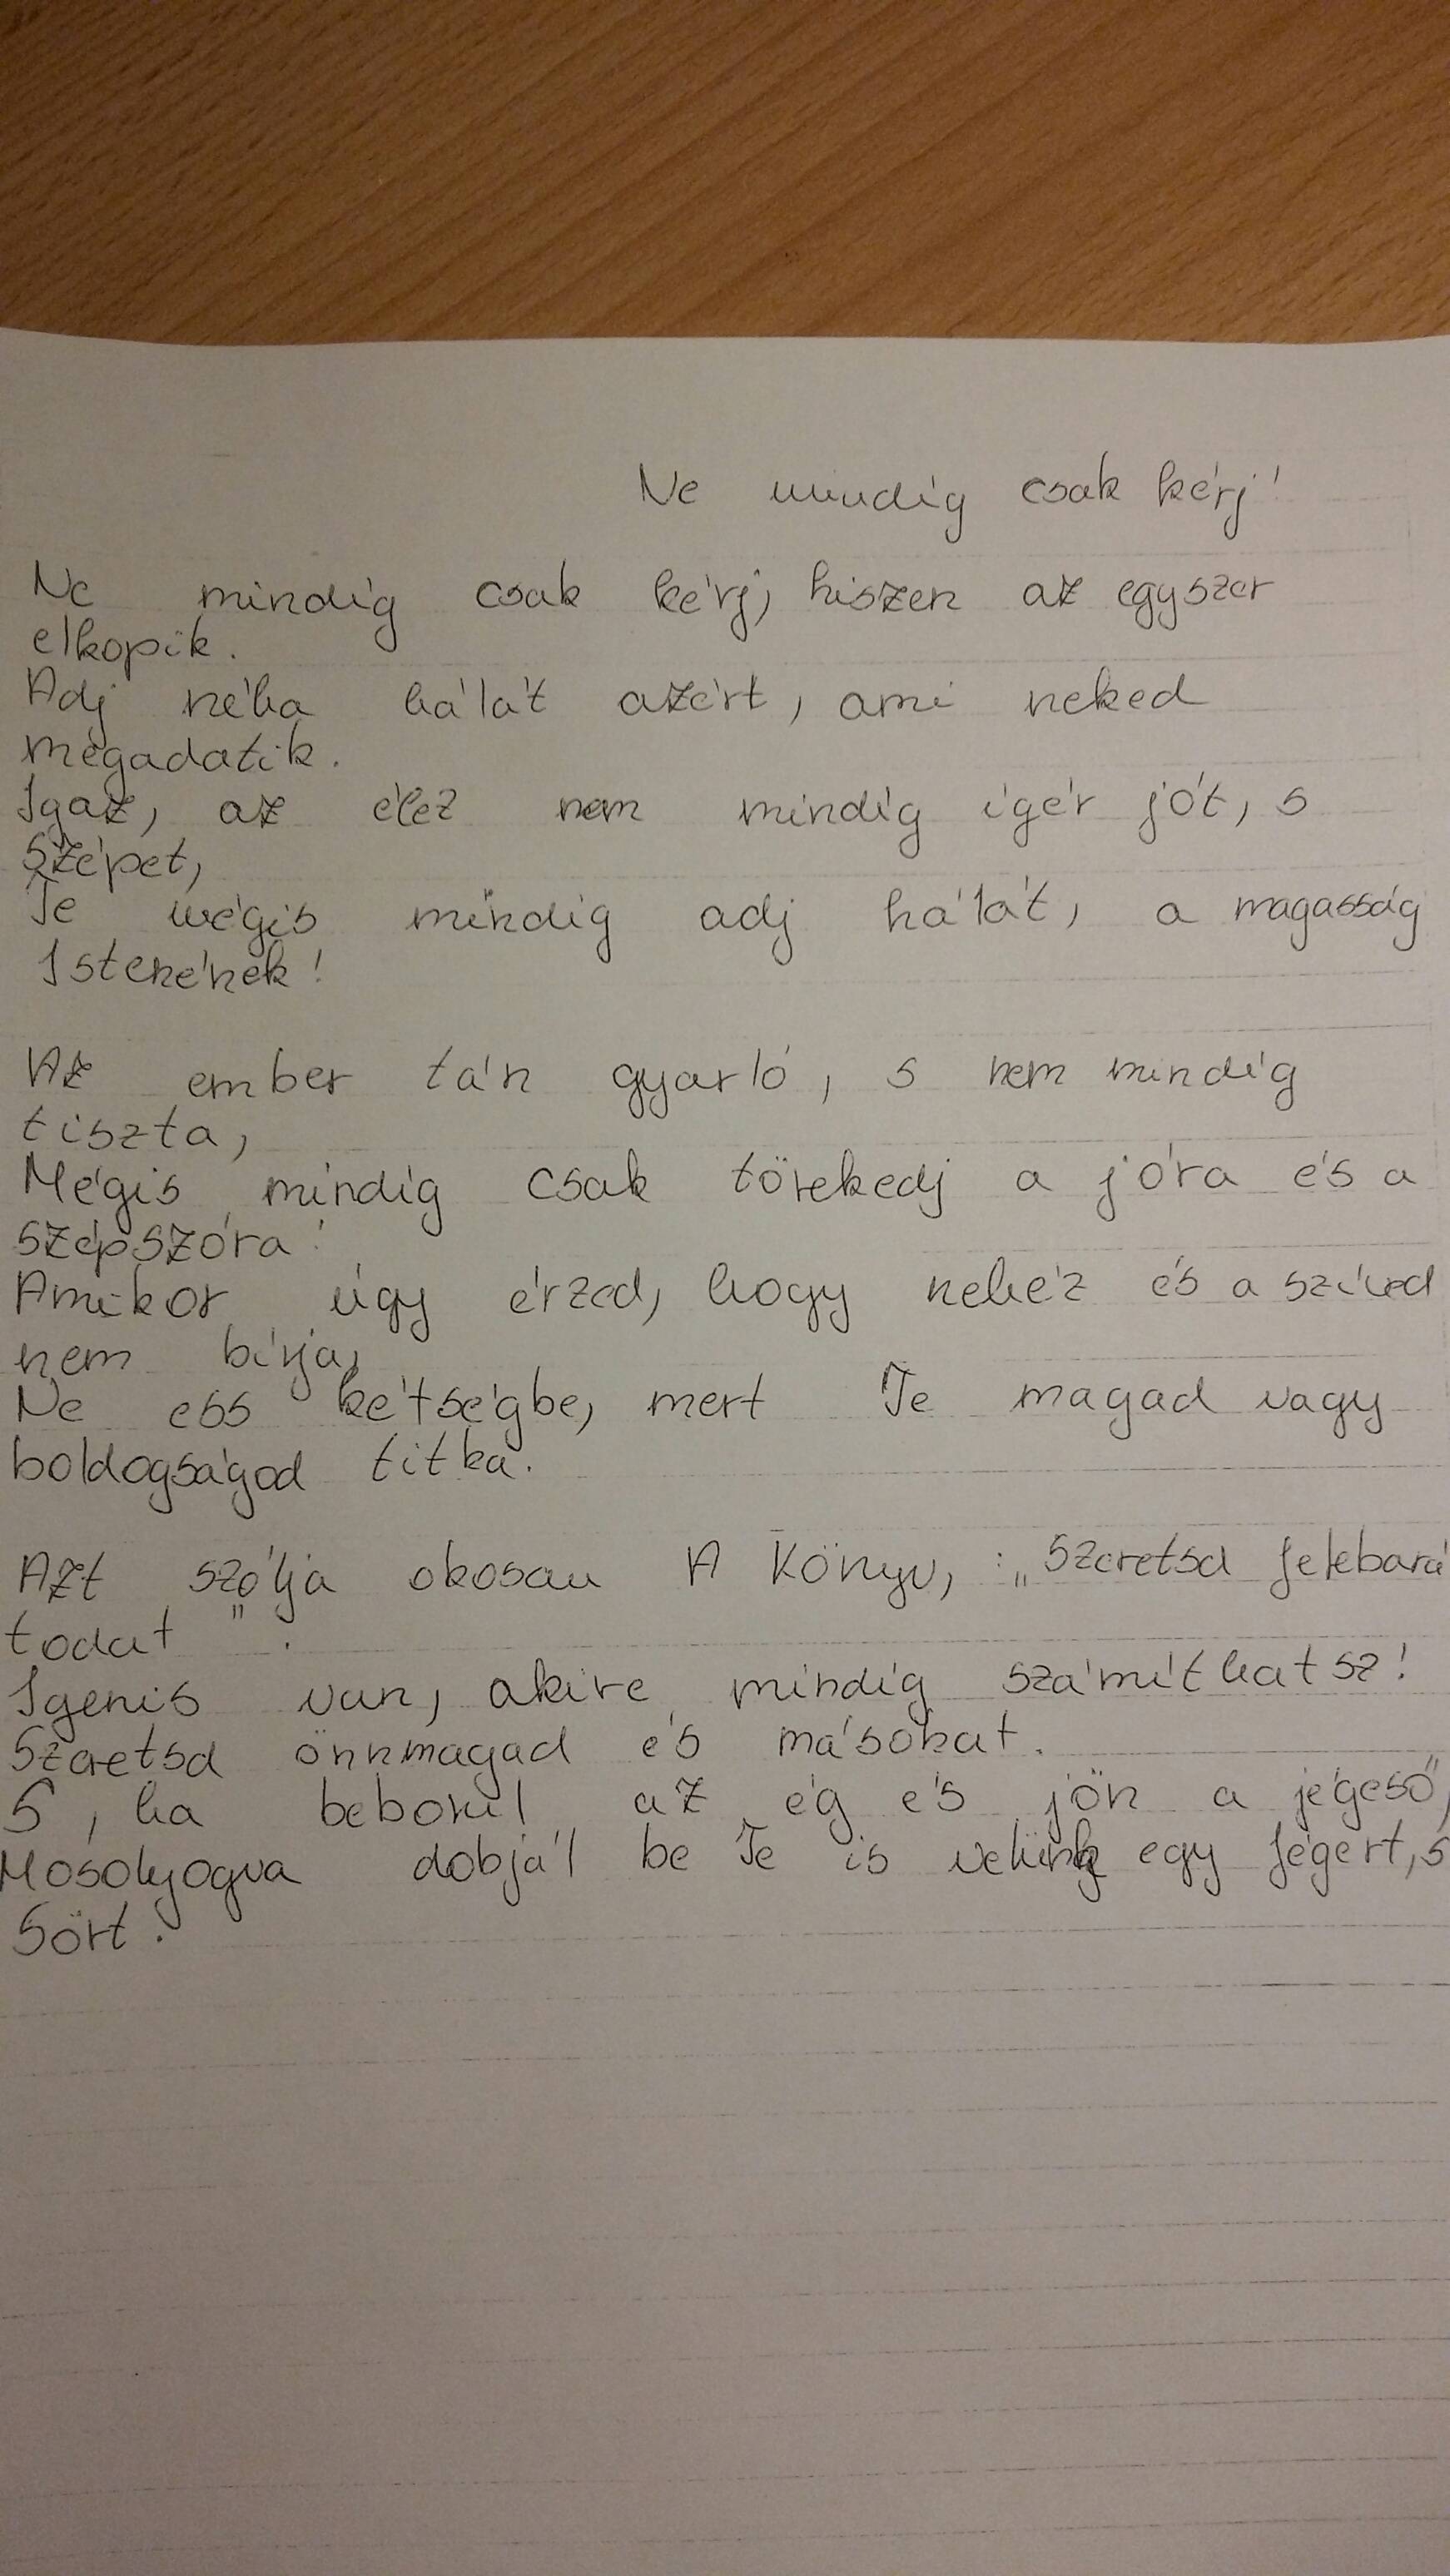 Ne mindíg csak kérj!
Ne mindíg csak kérj, hiszen az egyszer
elkopik.
Adj néha hálát azért, ami neked
megadatik.
Igaz, az élet nem mindíg igér jót, s
szépet,
Te mégis mindíg adj hálát, a magasság
Istenének!
Az ember tán gyarló, s nem mindíg
tiszta,
Mégis mindíg csak törekedj a jóra és a
szépszóra!
Amikor úgy érzed, hogy nehéz és a szíved
nem bírja,
Ne ess kétségbe, mert Te magad vagy
boldogságod titka.
Azt szólja okosan A Könyv, : „Szeretsd felebará
todat".
Igenis van, akire mindíg számíthatsz!
Szeretsd önnmagad és másokat.
S, ha beborul az ég és jön a jégeső,
Mosolyogva dobjál be Te is velünk egy jégert, s
Sört.